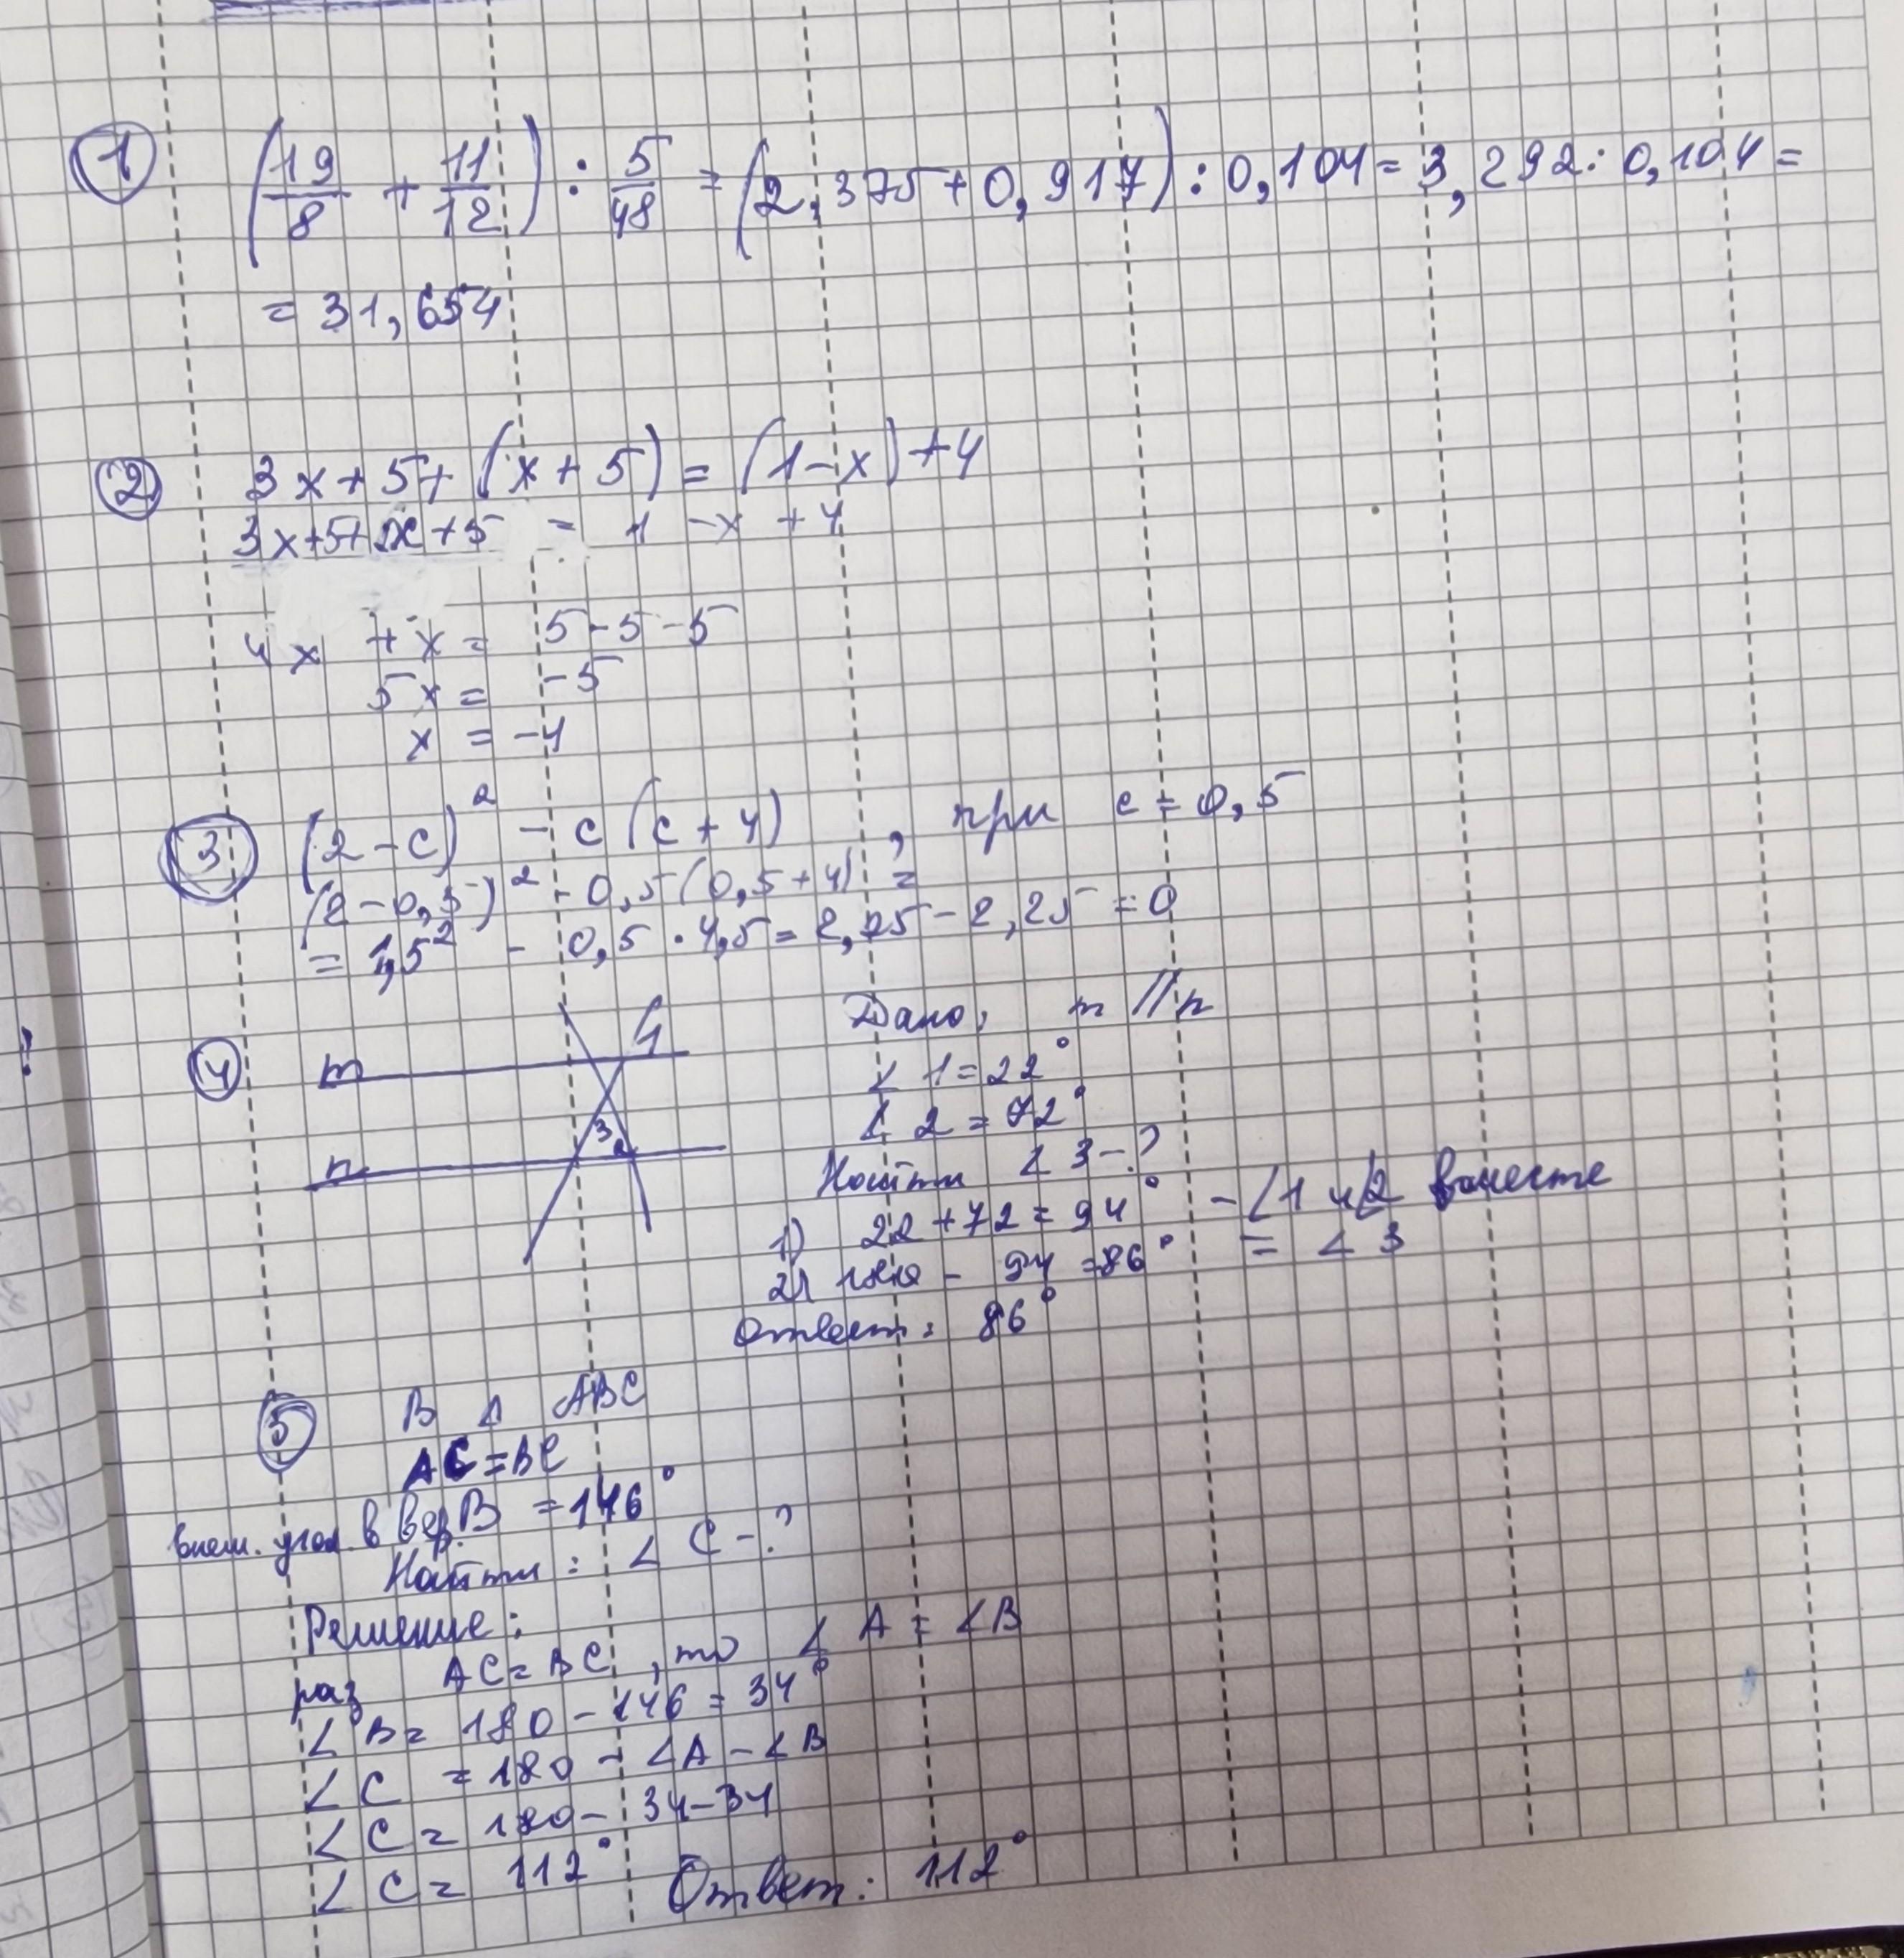 1 (19/8 + 11/12) : 5/48 = (2,375+0,917) : 0,104 = 3,292 : 0,104 =
= 31,654
2 3x+5+(x+5) = (1-x)+4
3x+5+x+5 = 1 -x +4
4x + x = 5-5-5
5x = -5
x = -1
3 (2-c)² - c(c+4) , при c = 0,5
(2-0,5)² - 0,5(0,5+4) =
= 1,5² - 0,5 · 4,5 = 2,25 - 2,25 = 0
4 m 1
3 2
n
Дано: m // n
∠ 1 = 22°
∠ 2 = 72°
Найти ∠ 3 - ?
1) 22 + 72 = 94° - ∠1 и ∠2 вместе
2) 180 - 94 = 86° = ∠ 3
Ответ: 86°
5 В Δ ABC
AC = BC
внеш. угол в вер. B = 146°
Найти : ∠ C - ?
Решение:
раз AC = BC , то ∠ A = ∠B
∠ B = 180 - 146 = 34°
∠ C = 180 - ∠A - ∠B
∠ C = 180 - 34-34
∠ C = 112° Ответ: 112°